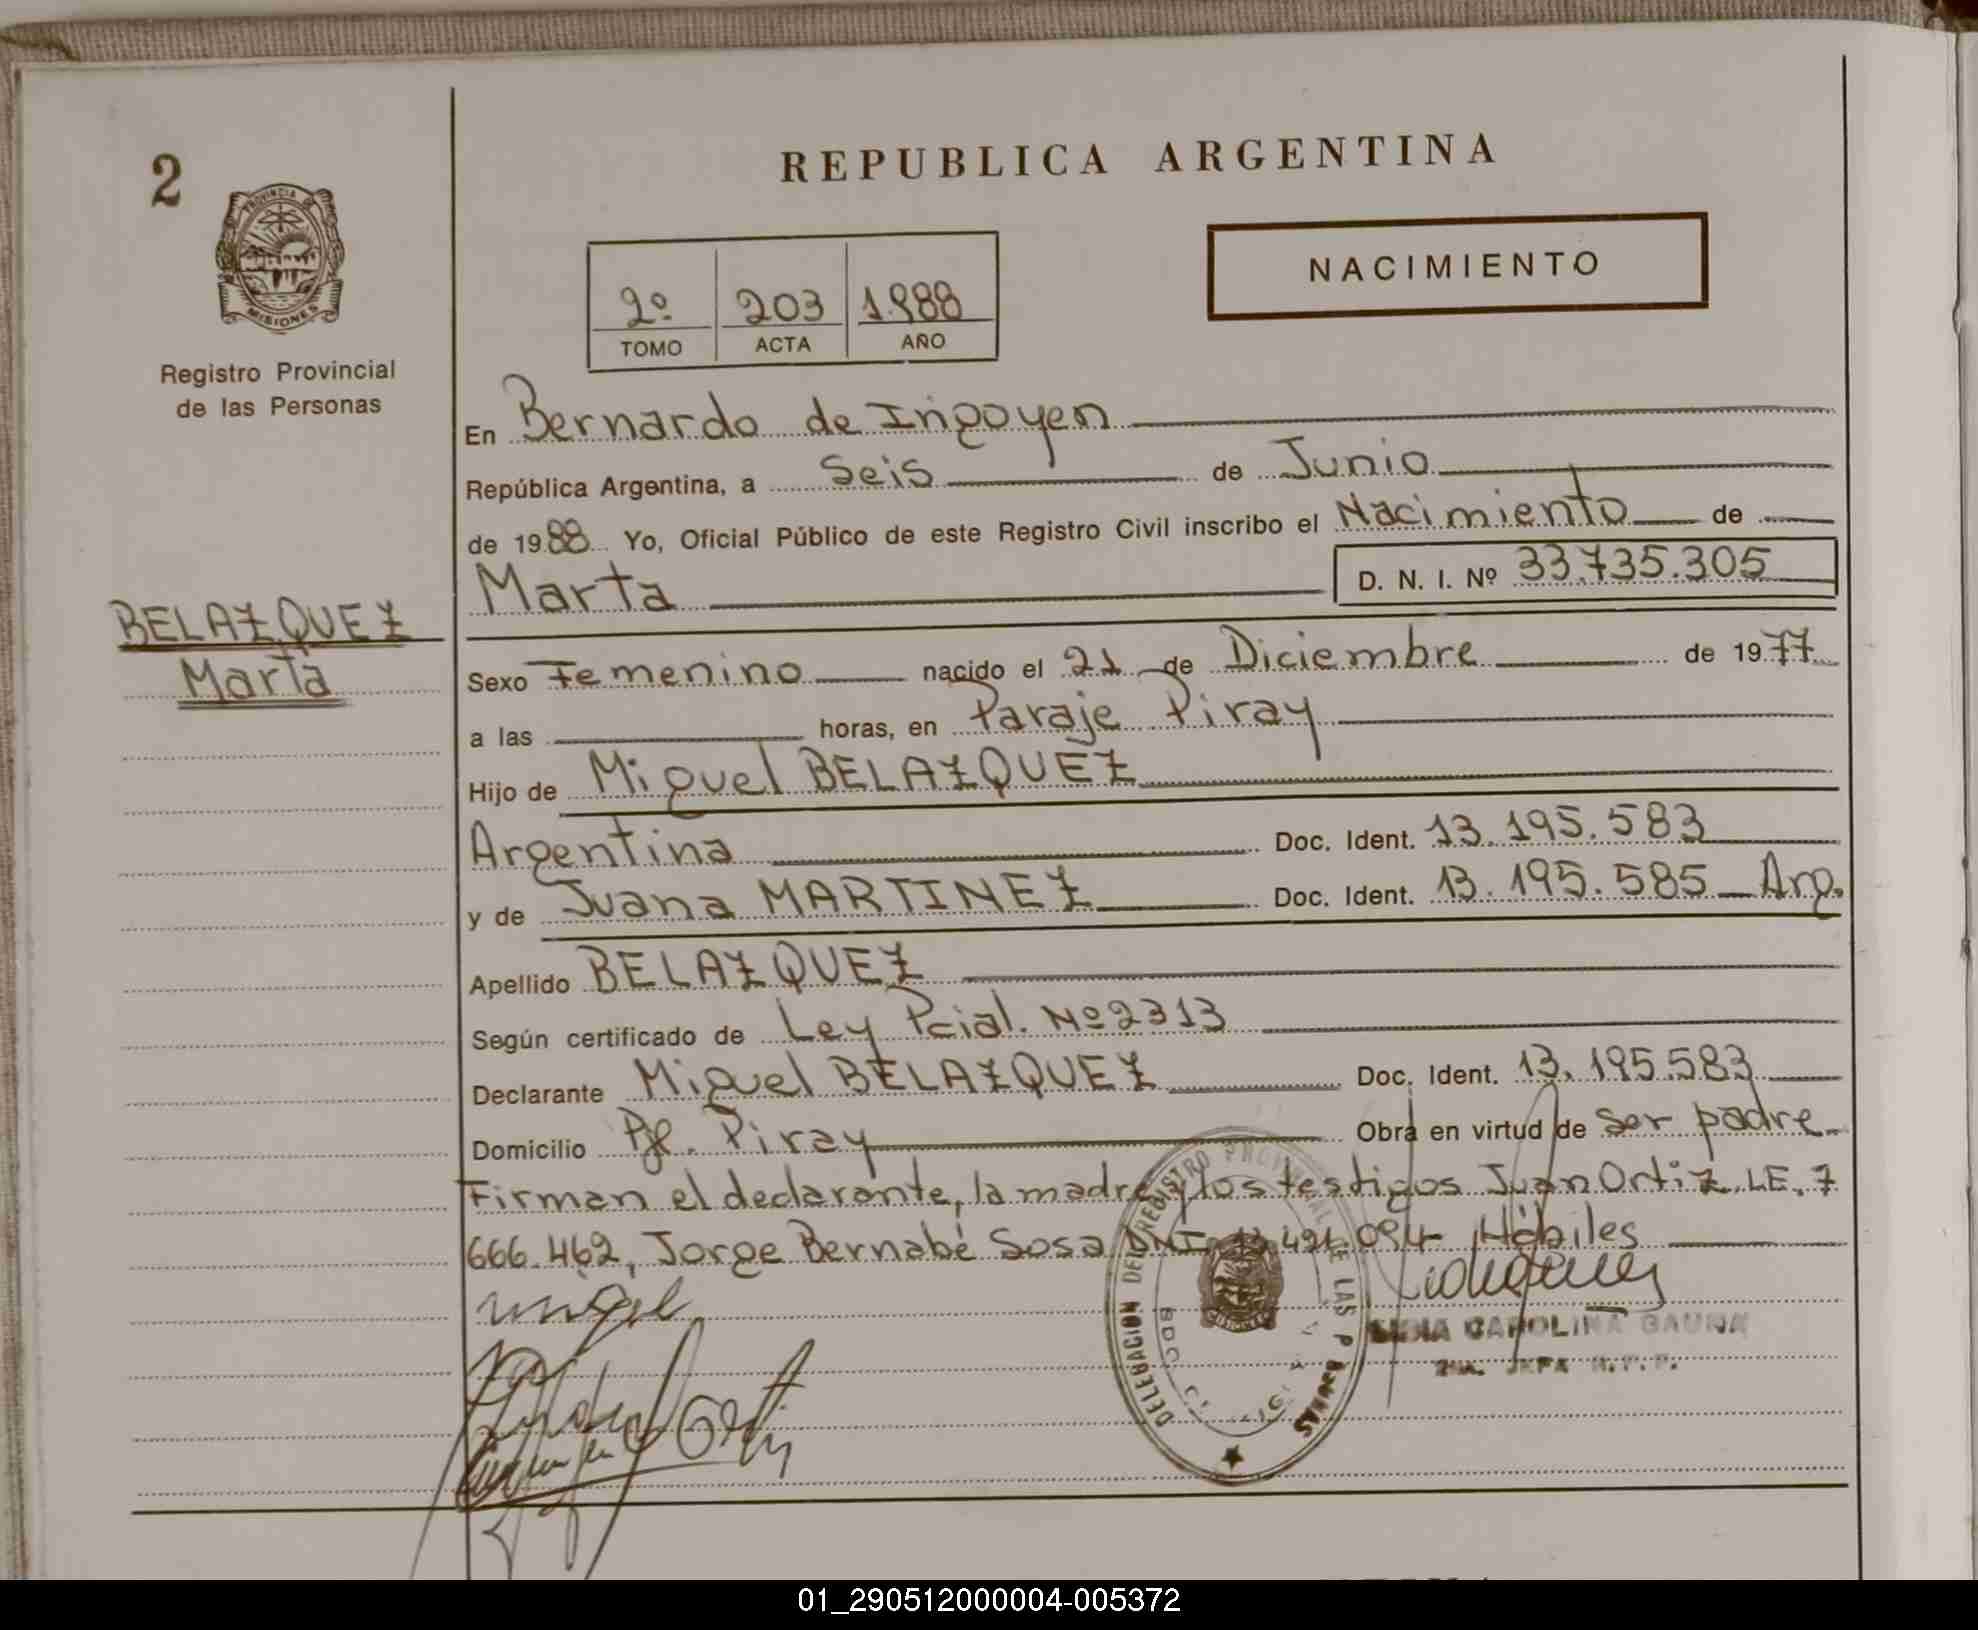 2
PROVINCIA DE
MISIONES
Registro Provincial
de las Personas
REPUBLICA ARGENTINA
NACIMIENTO
2º 203 1.988
TOMO ACTA AÑO
En Bernardo de Irigoyen
República Argentina, a Seis de Junio
de 1988 Yo, Oficial Público de este Registro Civil inscribo el Nacimiento de
Marta D. N. I. Nº 33.735.305
BELAZQUEZ
Marta
Sexo Femenino nacido el 21 de Diciembre de 1977
a las horas, en Paraje Piray
Hijo de Miguel BELAZQUEZ
Argentina Doc. Ident. 13.195.583
y de Juana MARTINEZ Doc. Ident. 13.195.585 Arg.
Apellido BELAZQUEZ
Según certificado de Ley Pcial. Nº 2313
Declarante Miguel BELAZQUEZ Doc. Ident. 13.195.583
Domicilio Pje. Piray Obra en virtud de ser padre
Firman el declarante, la madre y los testigos Juan Ortiz LE. 7
666.462, Jorge Bernabé Sosa DNI 094 Hábiles
DELEGACION DEL REGISTRO PROVINCIAL DE LAS PERSONAS
CAROLINA GAUNA
01_290512000004-005372